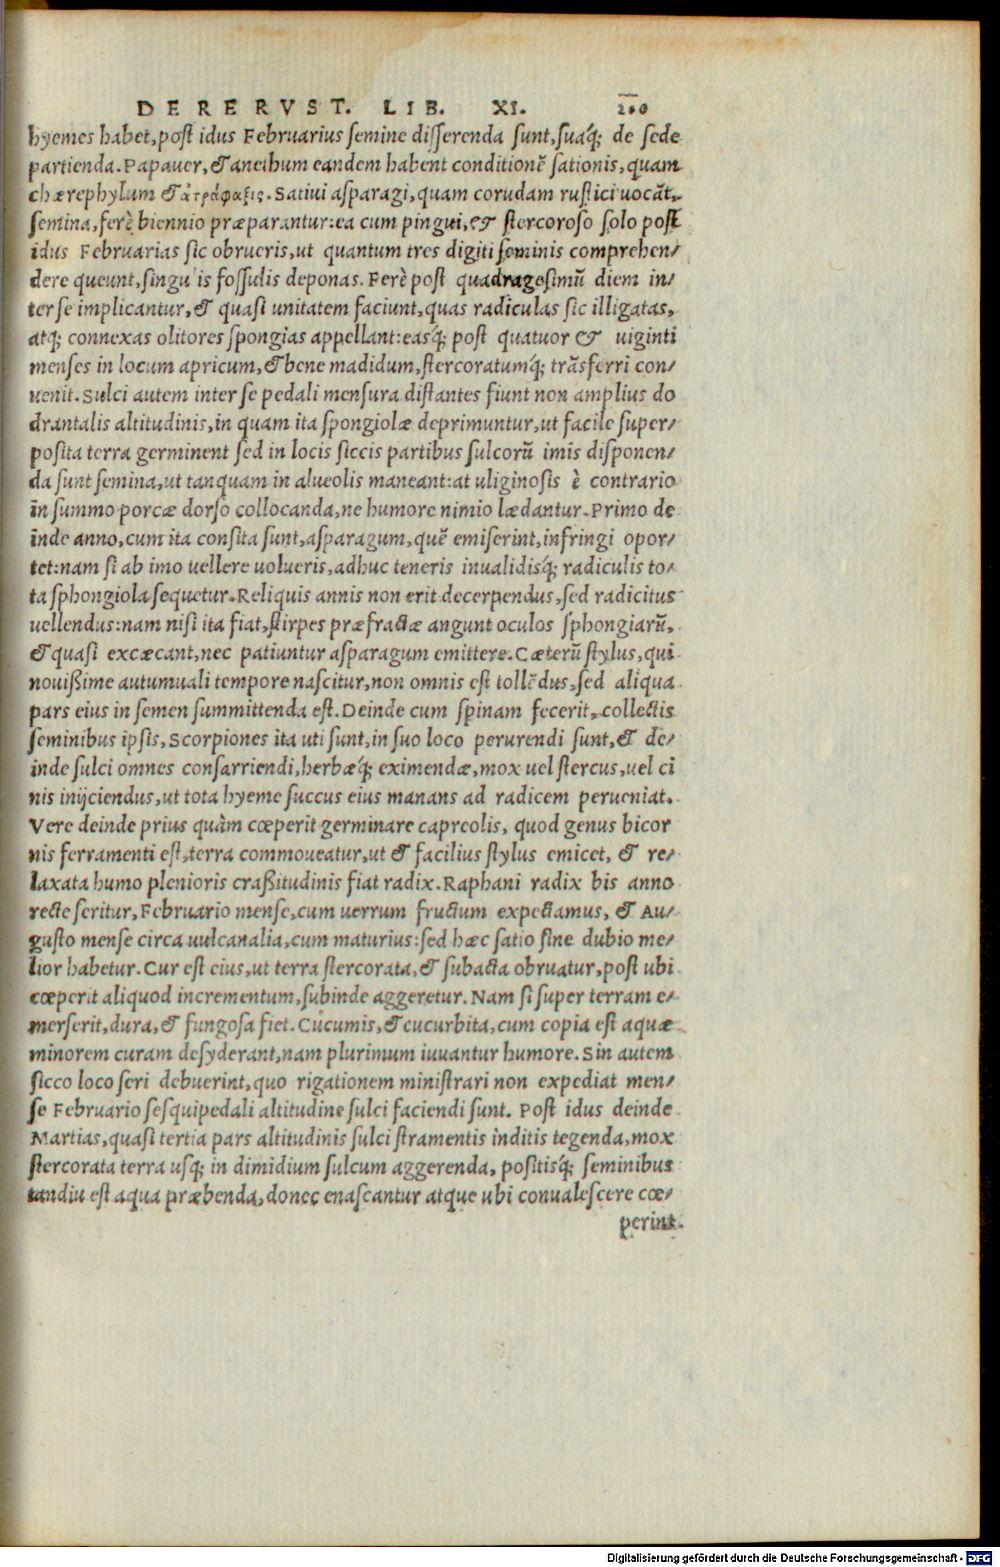 DE RE RVST. LIB. XI. 210
hyemes habet, post idus Februarius semine disserenda sunt, suaq́; de sede
partienda. Papauer, & anethum eandem habent conditionē sationis, quam
chærephylum & ἀτράφαξις. Satiui asparagi, quam corudam rustici uocāt,
semina, ferè biennio præparantur: ea cum pingui, & stercoroso solo post
idus Februarias sic obrueris, ut quantum tres digiti seminis comprehen/
dere queunt, singu is fossulis deponas. Ferè post quadragesimū diem in/
ter se implicantur, & quasi unitatem faciunt, quas radiculas sic illigatas,
atq; connexas olitores spongias appellant: easq́; post quatuor & uiginti
menses in locum apricum, & bene madidum, stercoratumq́; trāsferri con/
uenit. Sulci autem inter se pedali mensura distantes fiunt non amplius do
drantalis altitudinis, in quam ita spongiolæ deprimuntur, ut facile super/
posita terra germinent sed in locis siccis partibus sulcorū imis disponen/
da sunt semina, ut tanquam in alueolis maneant: at uliginosis è contrario
in summo porcæ dorso collocanda, ne humore nimio lædantur. Primo de
inde anno, cum ita consita sunt, asparagum, quē emiserint, infringi opor/
tet: nam si ab imo uellere uolueris, adhuc teneris inualidisq́; radiculis to/
ta sphongiola sequetur. Reliquis annis non erit decerpendus, sed radicitus
uellendus: nam nisi ita fiat, stirpes præfractæ angunt oculos sphongiarū,
& quasi excæcant, nec patiuntur asparagum emittere. Cæterū stylus, qui
nouißime autumuali tempore nascitur, non omnis est tollēdus, sed aliqua
pars eius in semen summittenda est. Deinde cum spinam fecerit, collectis
seminibus ipsis, Scorpiones ita uti sunt, in suo loco perurendi sunt, & de/
inde sulci omnes consarriendi, herbæq́; eximendæ, mox uel stercus, uel ci
nis inijciendus, ut tota hyeme succus eius manans ad radicem perueniat.
Vere deinde prius quàm cœperit germinare capreolis, quod genus bicor
nis ferramenti est, terra commoueatur, ut & facilius stylus emicet, & re/
laxata humo plenioris craßitudinis fiat radix. Raphani radix bis anno
recte seritur, Februario mense, cum uerrum fructum expectamus, & Au/
gusto mense circa uulcanalia, cum maturius: sed hæc satio sine dubio me/
lior habetur. Cur est eius, ut terra stercorata, & subacta obruatur, post ubi
cœperit aliquod incrementum, subinde aggeretur. Nam si super terram e/
merserit, dura, & fungosa fiet. Cucumis, & cucurbita, cum copia est aquæ
minorem curam desyderant, nam plurimum iuuantur humore. Sin autem
sicco loco seri debuerint, quo rigationem ministrari non expediat men/
se Februario sesquipedali altitudine sulci faciendi sunt. Post idus deinde
Martias, quasi tertia pars altitudinis sulci stramentis inditis tegenda, mox
stercorata terra usq; in dimidium sulcum aggerenda, positisq́; seminibus
tandiu est aqua præbenda, donec enascantur atque ubi conualescere cœ/
perint.
Digitalisierung gefördert durch die Deutsche Forschungsgemeinschaft - DFG